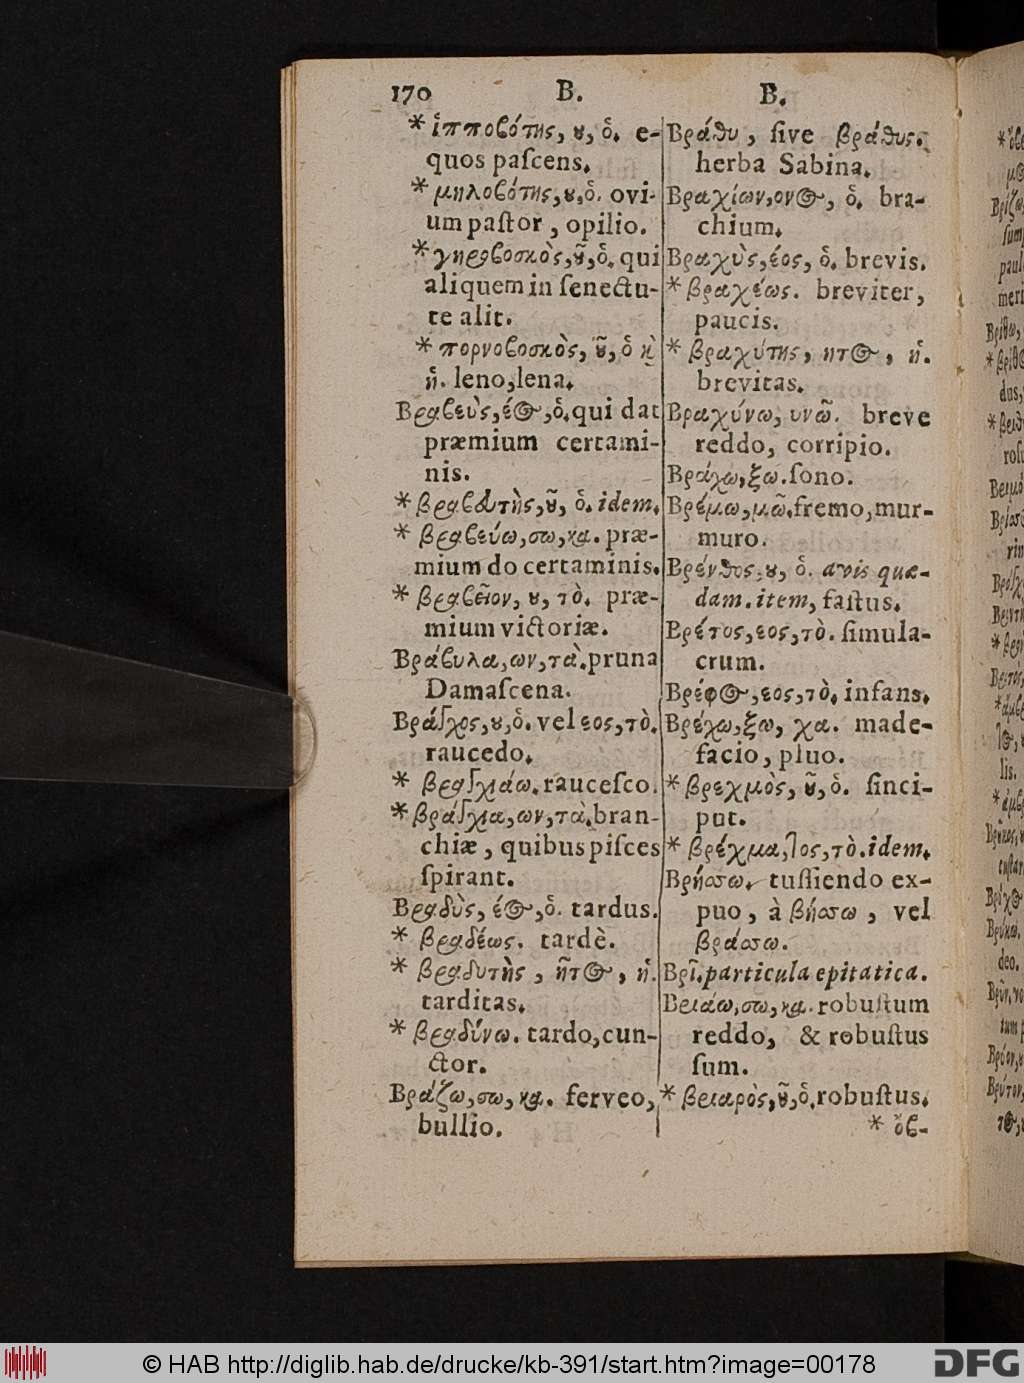 170 B. B.
* ἱπποβότης, ου, ὁ. e-
quos paſcens.
* μηλοβότης, ου, ὁ. ovi-
um paſtor, opilio.
* γηροβοσκὸς, οῦ, ὁ. qui
aliquem in ſenectu-
te alit.
* πορνοβοσκὸς, οῦ, ὁ καὶ
ἡ. leno, lena.
Βραβεὺς, έος, ὁ. qui dat
præmium certami-
nis.
* βραβευτὴς, οῦ, ὁ. idem.
* βραβεύω, σω, κα. præ-
mium do certaminis.
* βραβεῖον, ου, τὸ. præ-
mium victoriæ.
Βράβυλα, ων, τὰ. pruna
Damaſcena.
Βράγχος, ου, ὁ. vel εος, τὸ.
raucedo.
* βραγχιάω. rauceſco.
* βράγχια, ων, τὰ. bran-
chiæ, quibus piſces
ſpirant.
Βραδὺς, έος, ὁ. tardus.
* βραδέως. tardè.
* βραδυτὴς, ῆτος, ἡ.
tarditas.
* βραδύνω. tardo, cun-
ctor.
Βράζω, σω, κα. ferveo,
bullio.
Βράθυ, ſive βράθυς.
herba Sabina.
Βραχίων, ονος, ὁ. bra-
chium.
Βραχὺς, έος, ὁ. brevis.
* βραχέως. breviter,
paucis.
* βραχύτης, ητος, ἡ.
brevitas.
Βραχύνω, υνῶ. breve
reddo, corripio.
Βράχω, ξω. ſono.
Βρέμω, μῶ. fremo, mur-
muro.
Βρένθος, ου, ὁ. avis quæ-
dam. item, faſtus.
Βρέτος, εος, τὸ. ſimula-
crum.
Βρέφος, εος, τὸ. infans.
Βρέχω, ξω, χα. made-
facio, pluo.
* βρεχμὸς, οῦ, ὁ. ſinci-
put.
* βρέχμα, τος, τὸ. idem.
Βρήσσω. tuſſiendo ex-
puo, à βήσσω, vel
βράσσω.
Βρῖ. particula epitatica.
Βριάω, σω, κα. robuſtum
reddo, & robuſtus
ſum.
* βριαρὸς, οῦ, ὁ. robuſtus.
* ὄβ-
© HAB http://diglib.hab.de/drucke/kb-391/start.htm?image=00178
DFG